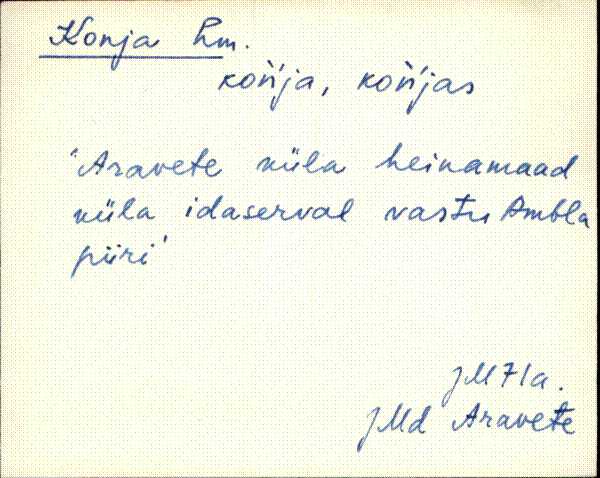 Konja hm.
koń'ja, koń'jas
'Aravete küla heinamaad
küla idaserval vastu Ambla
piiri'
JM71a.
JMd Aravete